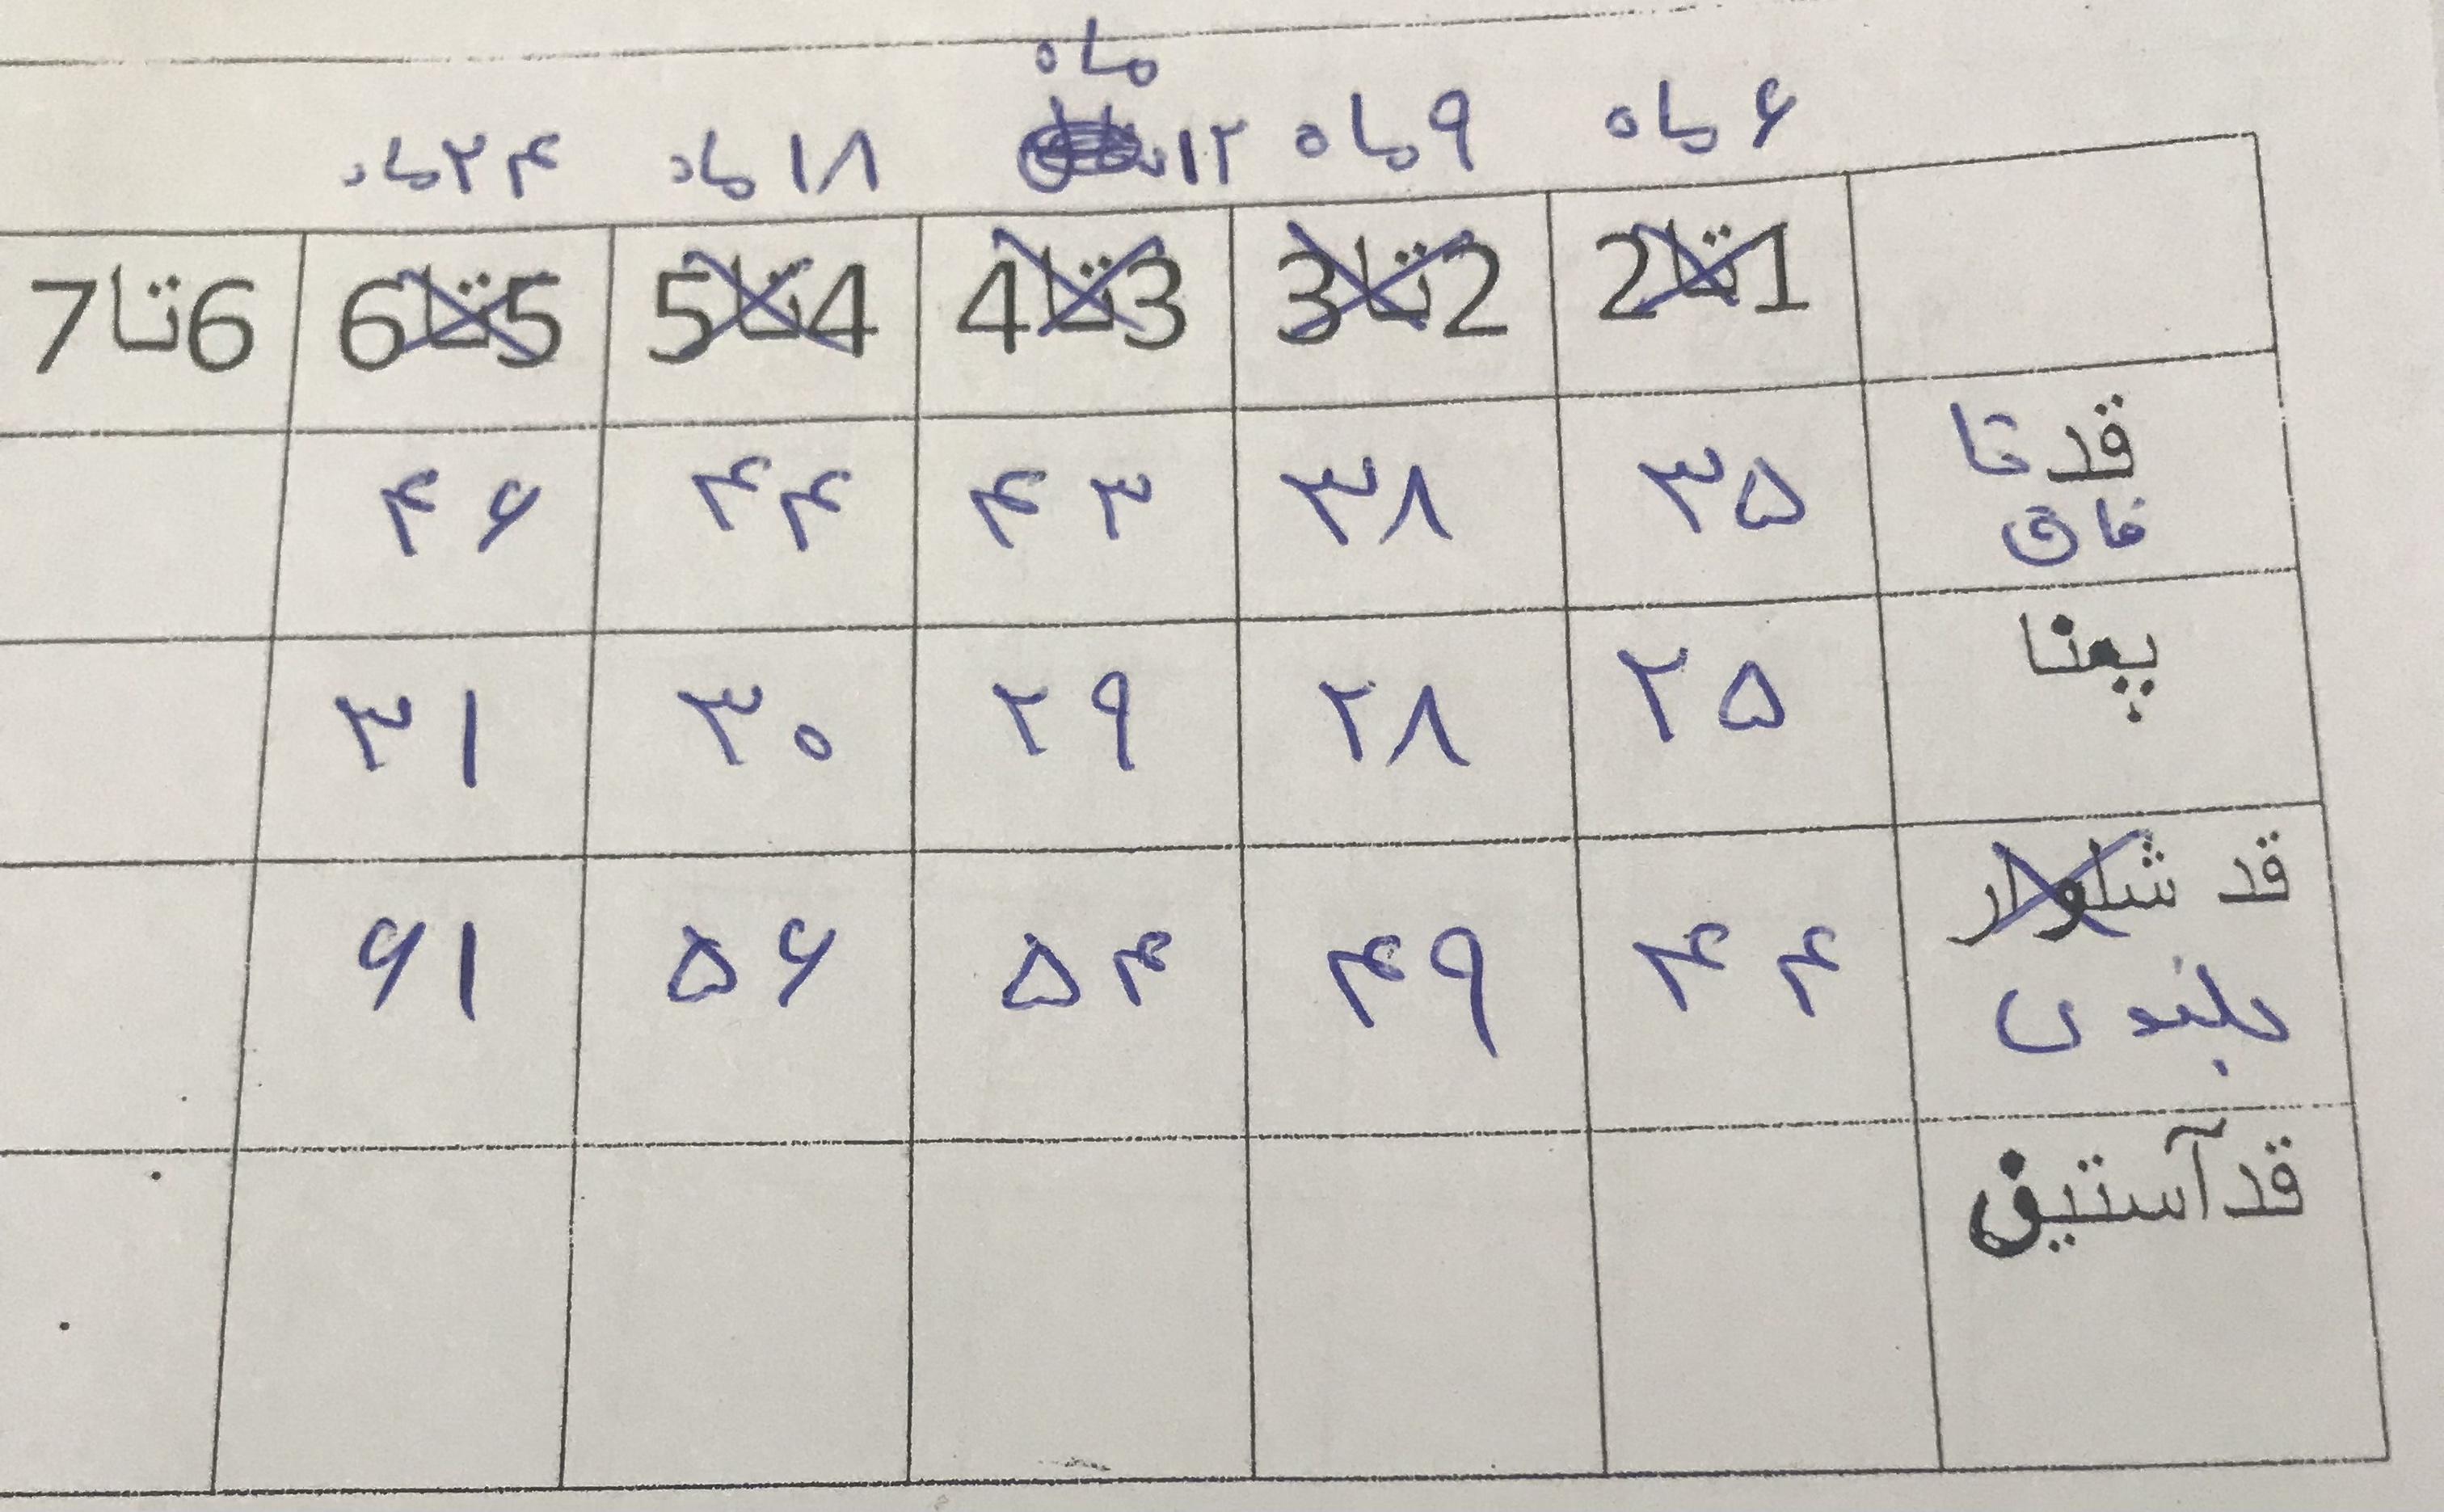 ۶ ماه ۹ ماه ۱۲ ماه ۱۸ ماه ۲۴ ماه
1تا2 2تا3 3تا4 4تا5 5تا6 6تا7
قد تا فاق ۳۵ ۳۸ ۴۳ ۴۴ ۴۶
پهنا ۲۵ ۲۸ ۲۹ ۳۰ ۳۱
قد شلوار بلندی ۴۴ ۴۹ ۵۴ ۵۶ ۶۱
قد آستین